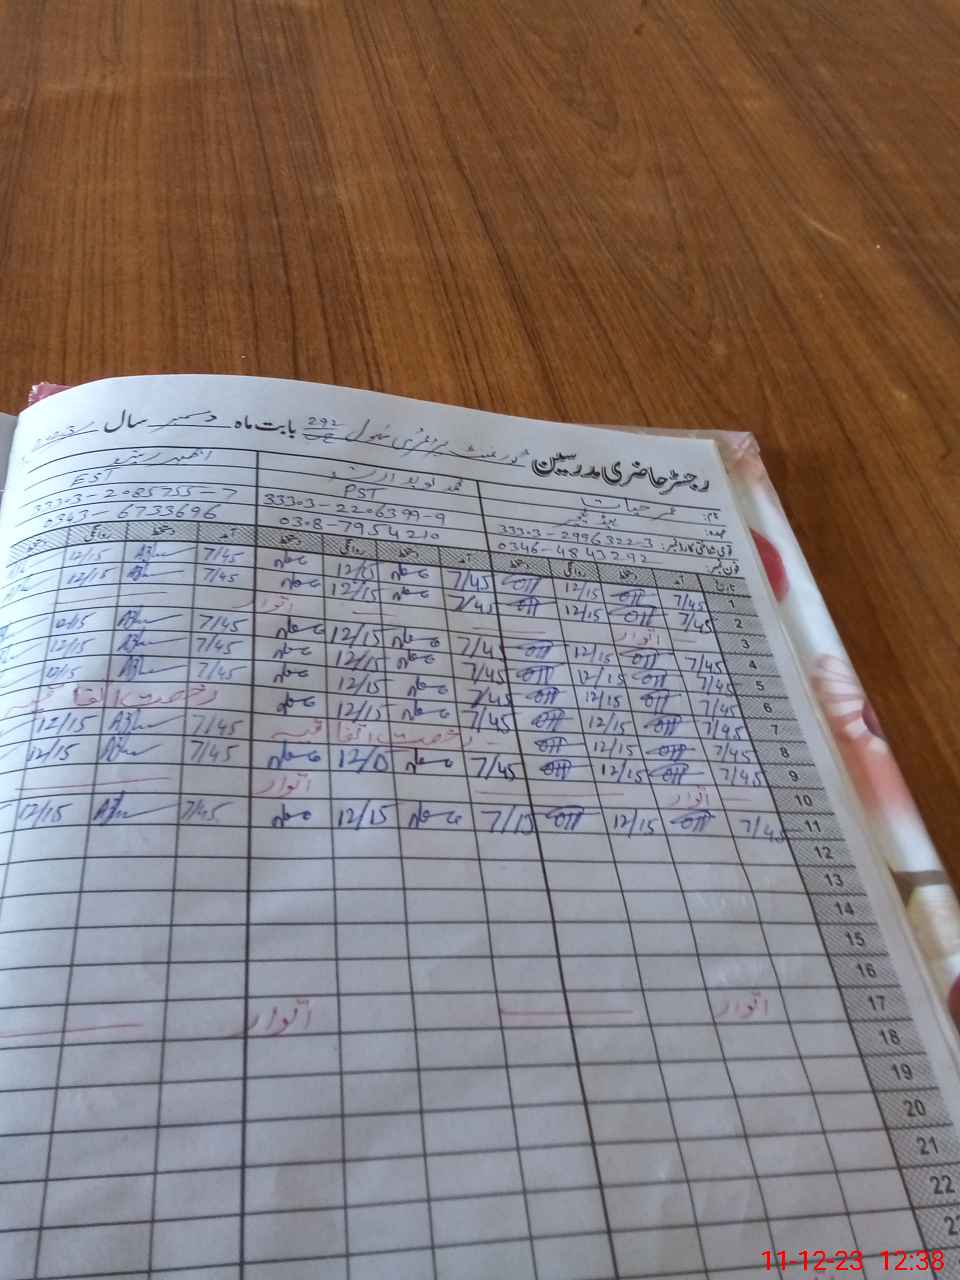 رجسٹر حاضری مدرسین گورنمنٹ پرائمری سکول 292 بابت ماہ دسمبر سال
نام: عمر حیات
عہدہ:
قومی شناختی کارڈ نمبر: 33303-2996322-3
فون نمبر: 0346-4843292
محمد نوید ارشد
PST
33303-2206399-9
0308-7954210
اظہر رشید
EST
33303-2085755-7
0343-6733696
تاریخ آمد دستخط روانگی دستخط آمد دستخط روانگی دستخط آمد دستخط روانگی دستخط
1 7/45 12/15 7/45 12/15 7/45 12/15
2 7/45 12/15 7/45 12/15 7/45 12/15
3 اتوار اتوار
4 7/45 12/15 7/45 12/15 7/45 12/15
5 7/45 12/15 7/45 12/15 7/45 12/15
6 7/45 12/15 7/45 12/15 7/45 12/15
7 7/45 12/15 7/45 12/15 رخصت اتفاقیہ
8 7/45 12/15 رخصت اتفاقیہ 7/45 12/15
9 7/45 12/15 7/45 7/45 12/15
10 اتوار اتوار
11 7/45 12/15 7/15 12/15 7/45 12/15
12
13
14
15
16
17 اتوار اتوار
18
19
20
21
22
11-12-23 12:38